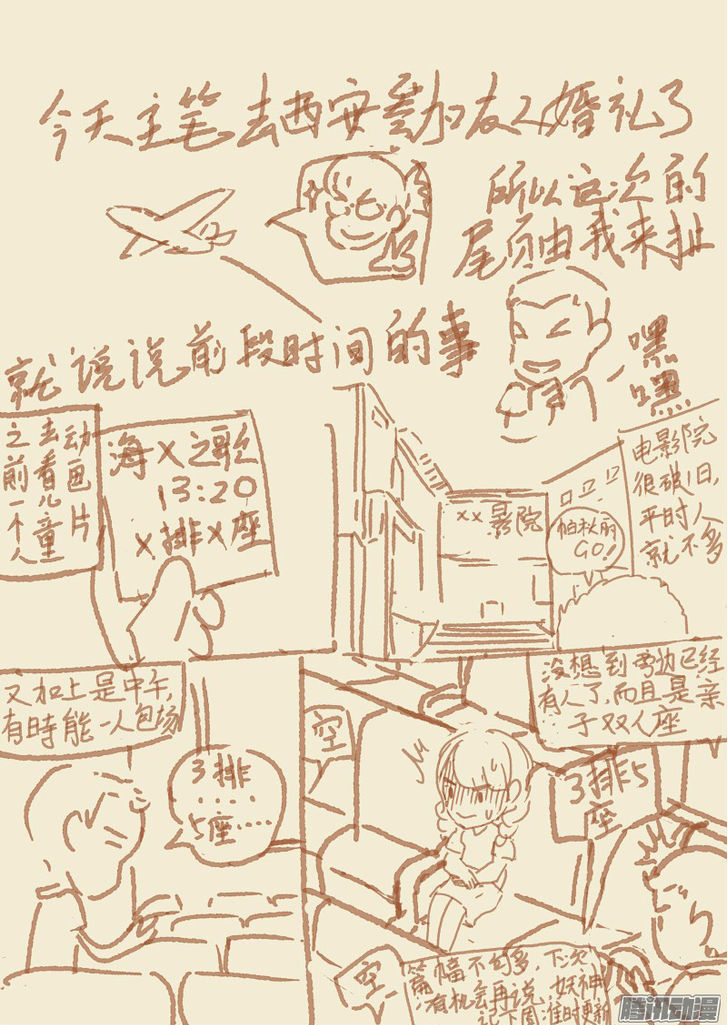 今天主笔去西安参加友人婚礼了
所以这次的
尾页由我来扯
就说说前段时间的事
嘿
嘿
之前一个人
去看儿童
动画片
海X之歌
13:20
X排X座
xx影院
帕秋莉
GO!
电影院
很破旧,
平时人
就不多
又加上是中午,
有時能一人包场
3排
....
5座....
没想到旁边已经
有人了,而且是亲
子双人座
空
3排5
座
空
篇幅不句多,下次
有机会再说,妖神
记下周准时更新
腾讯动漫